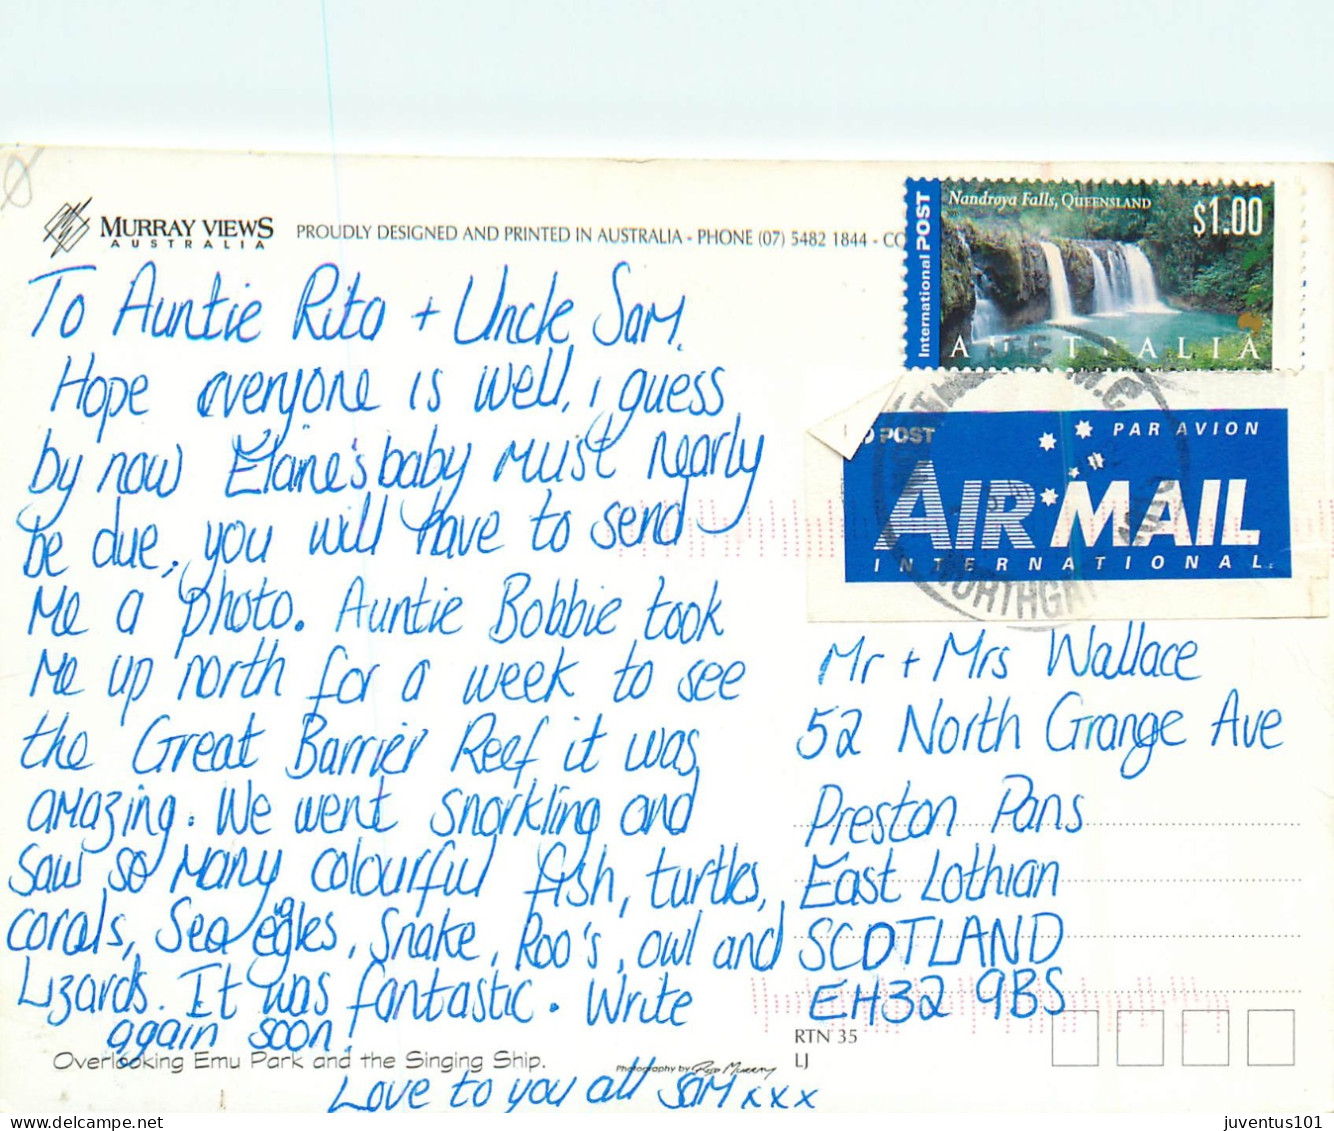 MURRAY VIEWS
AUSTRALIA
PROUDLY DESIGNED AND PRINTED IN AUSTRALIA - PHONE (07) 5482 1844 - CO
International POST
Nandroya Falls, QUEENSLAND
$1.00
AUSTRALIA
POST
PAR AVION
AIR MAIL
INTERNATIONAL
To Auntie Rita + Uncle Sam.
Hope everyone is well, i guess
by now Elaine's baby must nearly
be due, you will have to send
me a photo. Auntie Bobbie took
me up north for a week to see
the Great Barrier Reef it was
amazing. We went snorkling and
saw so many colourful fish, turtles,
corals, Sea eagles, Snake, Roo's, owl and
Lizards. It was fantastic. Write
again soon!
Love to you all Sam xxx
Mr + Mrs Wallace
52 North Grange Ave
Preston Pans
East Lothian
SCOTLAND
EH32 9BS
RTN 35
LJ
Overlooking Emu Park and the Singing Ship.
Photography by
juventus101